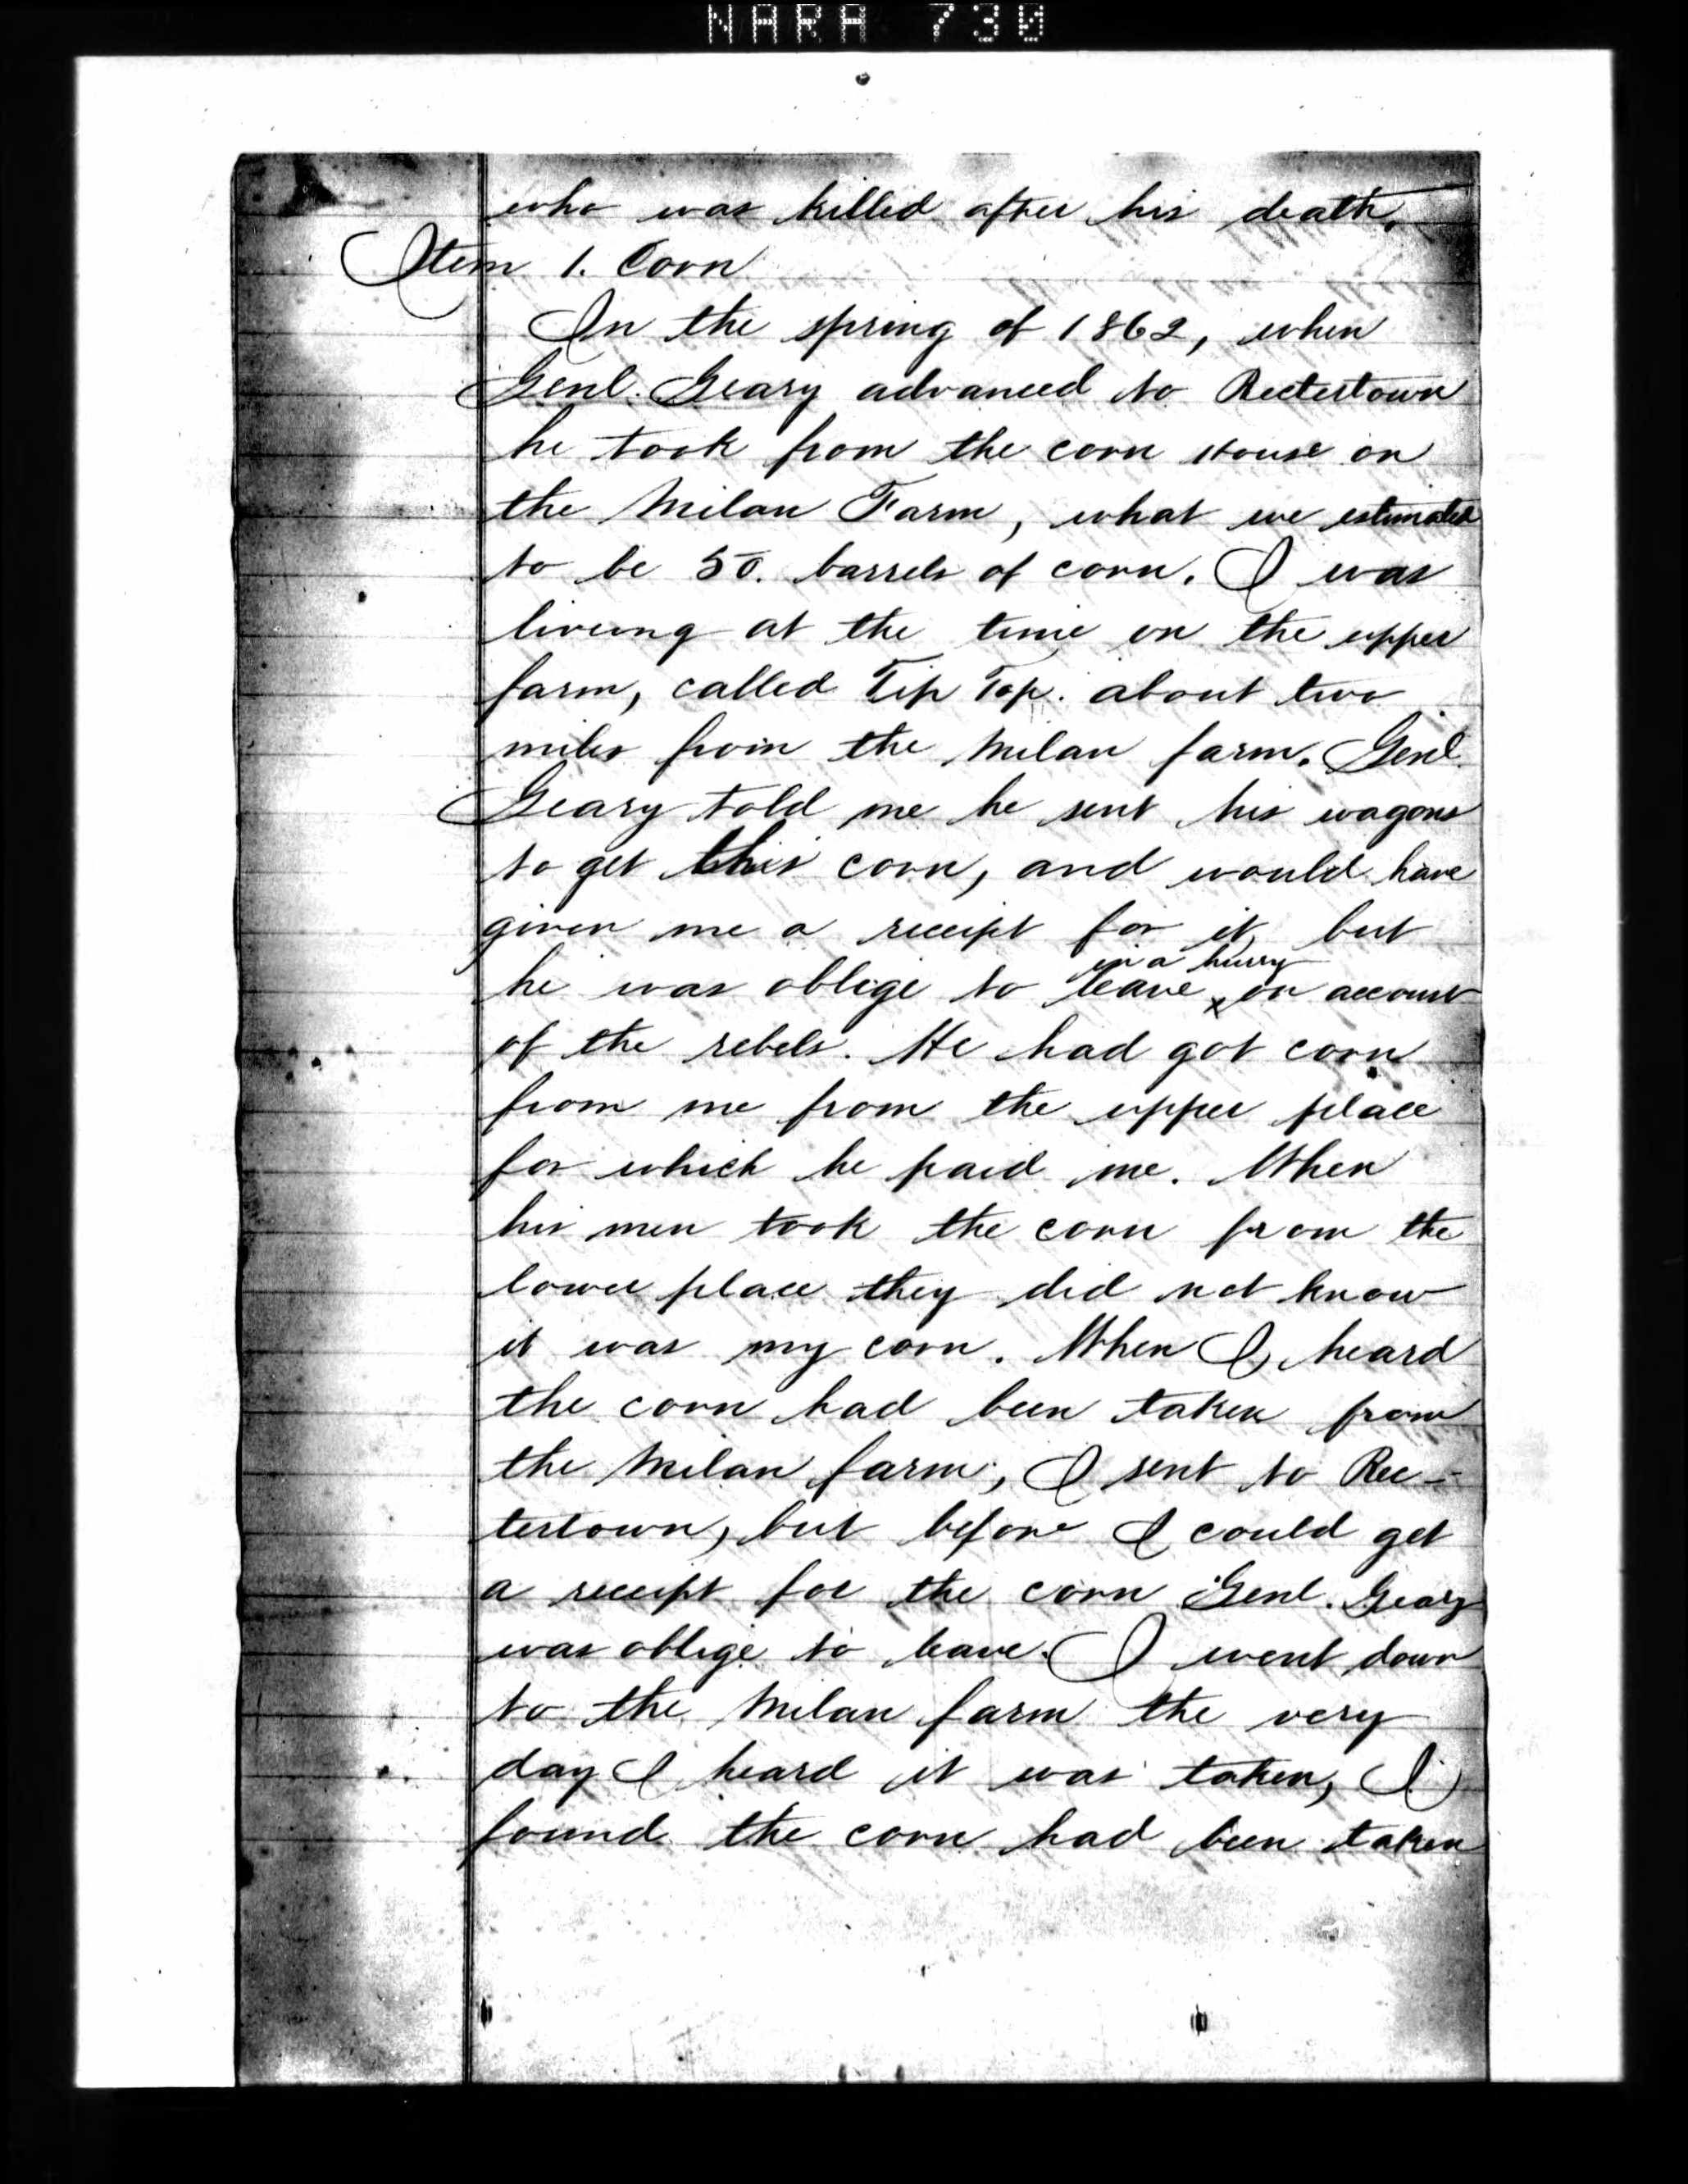 NARA 730
who was killed after his death.
Item 1. Corn
In the spring of 1862, when
Genl. Geary advanced to Rectertown
he took from the corn House on
the Milan Farm, what we estimated
to be 50. barrels of corn. I was
liveing at the time on the upper
farm, called Tip Top. about two
miles from the Milan farm. Genl.
Geary told me he sent his wagons
to get this corn, and would have
given me a receipt for it, but
in a hurry
he was oblige to leave x on account
of the rebels. He had got corn
from me from the upper place
for which he paid me. When
his men took the corn from the
lower place they did not know
it was my corn. When I heard
the corn had been taken from
the Milan farm, I sent to Rec-
tertown, but before I could get
a receipt for the corn Genl. Geary
was oblige to leave. I went down
to the Milan farm the very
day I heard it was taken, I
found the corn had been taken